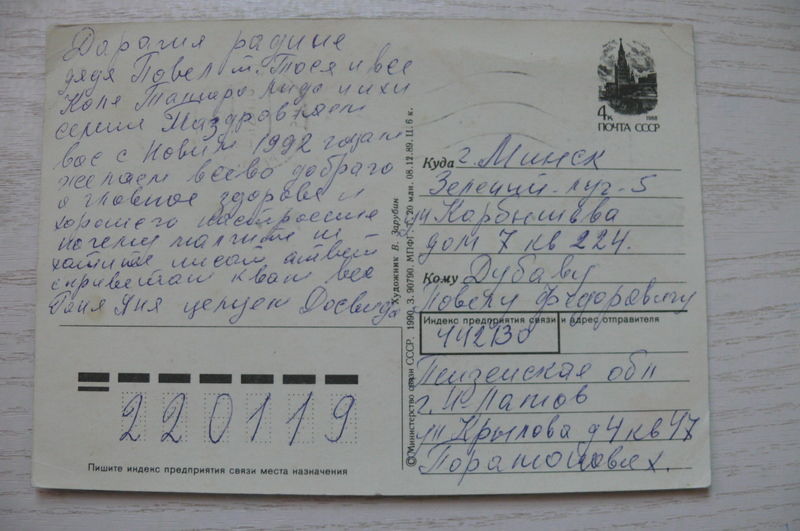 Дарагия радние
дядя Повел т. Тося и все
Коля Тамара Лида и ихи
семии Паздровляем
вас с Новим 1992 годам
желаем всево доброго
а главное здоровя и
хорошего настроение
почему малчите не
хатите писат ответ
с приветам к вам все
Таня Аня целуем Досвида
4к 1988
ПОЧТА СССР
Куда г. Минск
Зелений-луг-5
ул Карбышева
дом 7 кв 224.
Кому Дубаву
Повелу Федоровичу
Индекс предприятия связи и адрес отправителя
442130
Пензенская обл
г. Н-Ламов
ул Крылова д 4 кв 47
220119
Пишите индекс предприятия связи места назначения
© Министерство связи СССР. 1990. З. 90790. МПФГ. 20 млн. 08.12.89. Ц. 6 к.
Художник В. Зарубин